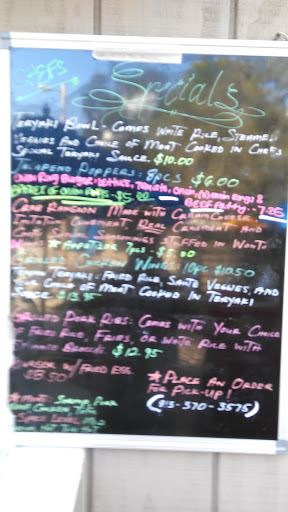 CHEFS
Specials
Teryaki Bowl: Comes White Rice, Steamed
Veggies And Choice of Meat Cooked in Chefs
Special Teryaki Sauce $10.00
Jalapeno Poppers: 8pcs $6.00
Onion Ring Burger: Lettuce, Tomato, Onion, Onion Rings &
Beef Patty - 7.25
$5.00
Crab Rangoon Made with Cream Cheese,
Imitation Crab Meat
Seasonings Stuffed in Wonton
* Appetizer 7pcs - $5.00
Grilled Chicken Wings: 10pc $10.50
Teryaki: Fried Rice, Sauté Veggies, And
Choice of Meat Cooked in Teryaki
Sauce $13.95
Pork Ribs: Comes with Your Choice
of Fried Rice, Fries, or White Rice with
$12.95
Burger w/ Fried Egg
$8.50
* Place An Order
For Pick-Up!
(813-370-3575)
Shrimp, Pork
Chicken, Tofu
Level: Mild